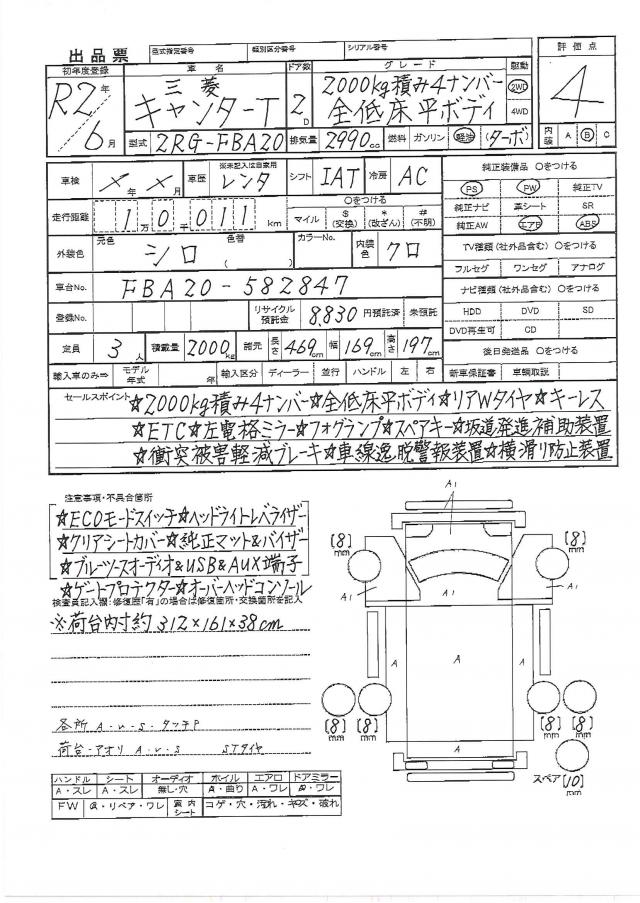 出品票 型式指定番号 類別区分番号 シリアル番号
初年度登録 車名 ドア数 グレード 駆動 評価点
R2年 三菱 2 2000kg積み4ナンバー 2WD 4
6月 キャンターT D 全低床平ボディ 4WD
型式 2RG-FBA20 排気量 2990cc 燃料 ガソリン 軽油 (ターボ) 内装 A B C
車検 ×年×月 車歴 未記入は自家用 レンタ シフト IAT 冷房 AC 純正装備品 ○をつける
PS PW 純正TV
走行距離 1万0千011km ○をつける マイル $(交換) *(改ざん) #(不明) 純正ナビ 革シート SR
純正AW エアB ABS
外装色 元色 シロ 色替 ( ) カラーNo. 内装色 クロ TV種類(社外品含む) ○をつける
フルセグ ワンセグ アナログ
車台No. FBA20-582847 ナビ種類(社外品含む) ○をつける
登録No. リサイクル預託金 8,830円預託済 未預託 HDD DVD SD
DVD再生可 CD
定員 3人 積載量 2000kg 諸元 長さ 469cm 幅 169cm 高さ 197cm 後日発送品 ○をつける
輸入車のみ⇒ モデル年式 年 輸入区分 ディーラー 並行 ハンドル 左 右 新車保証書 車輌取説
セールスポイント ☆2000kg積み4ナンバー☆全低床平ボディ☆リアWタイヤ☆キーレス
☆ETC☆左電格ミラー☆フォグランプ☆スペアキー☆坂道発進補助装置
☆衝突被害軽減ブレーキ☆車線逸脱警報装置☆横滑り防止装置
注意事項・不具合箇所
☆ECOモードスイッチ☆ヘッドライトレベライザー
☆クリアシートカバー☆純正マット&バイザー
☆ブルーツースオーディオ&USB&AUX端子
☆ゲートプロテクター☆オーバーヘッドコンソール
検査員記入欄:修復歴「有」の場合は修復箇所・交換箇所を記入
※荷台内寸約312×161×38cm
各所 A・U・S・タッチP
荷台-アオリ A・U・S STタイヤ
A1
[8]mm [8]mm
A1 A1 A1
A A A
[8]mm [8]mm [8]mm [8]mm
A
スペア [10]mm
ハンドル シート オーディオ ホイル エアロ ドアミラー
A・スレ A・スレ 無し・穴 A・曲り A・ワレ A・ワレ
FW A・リペア・ワレ 室内シート コゲ・穴・汚れ・キズ・破れ